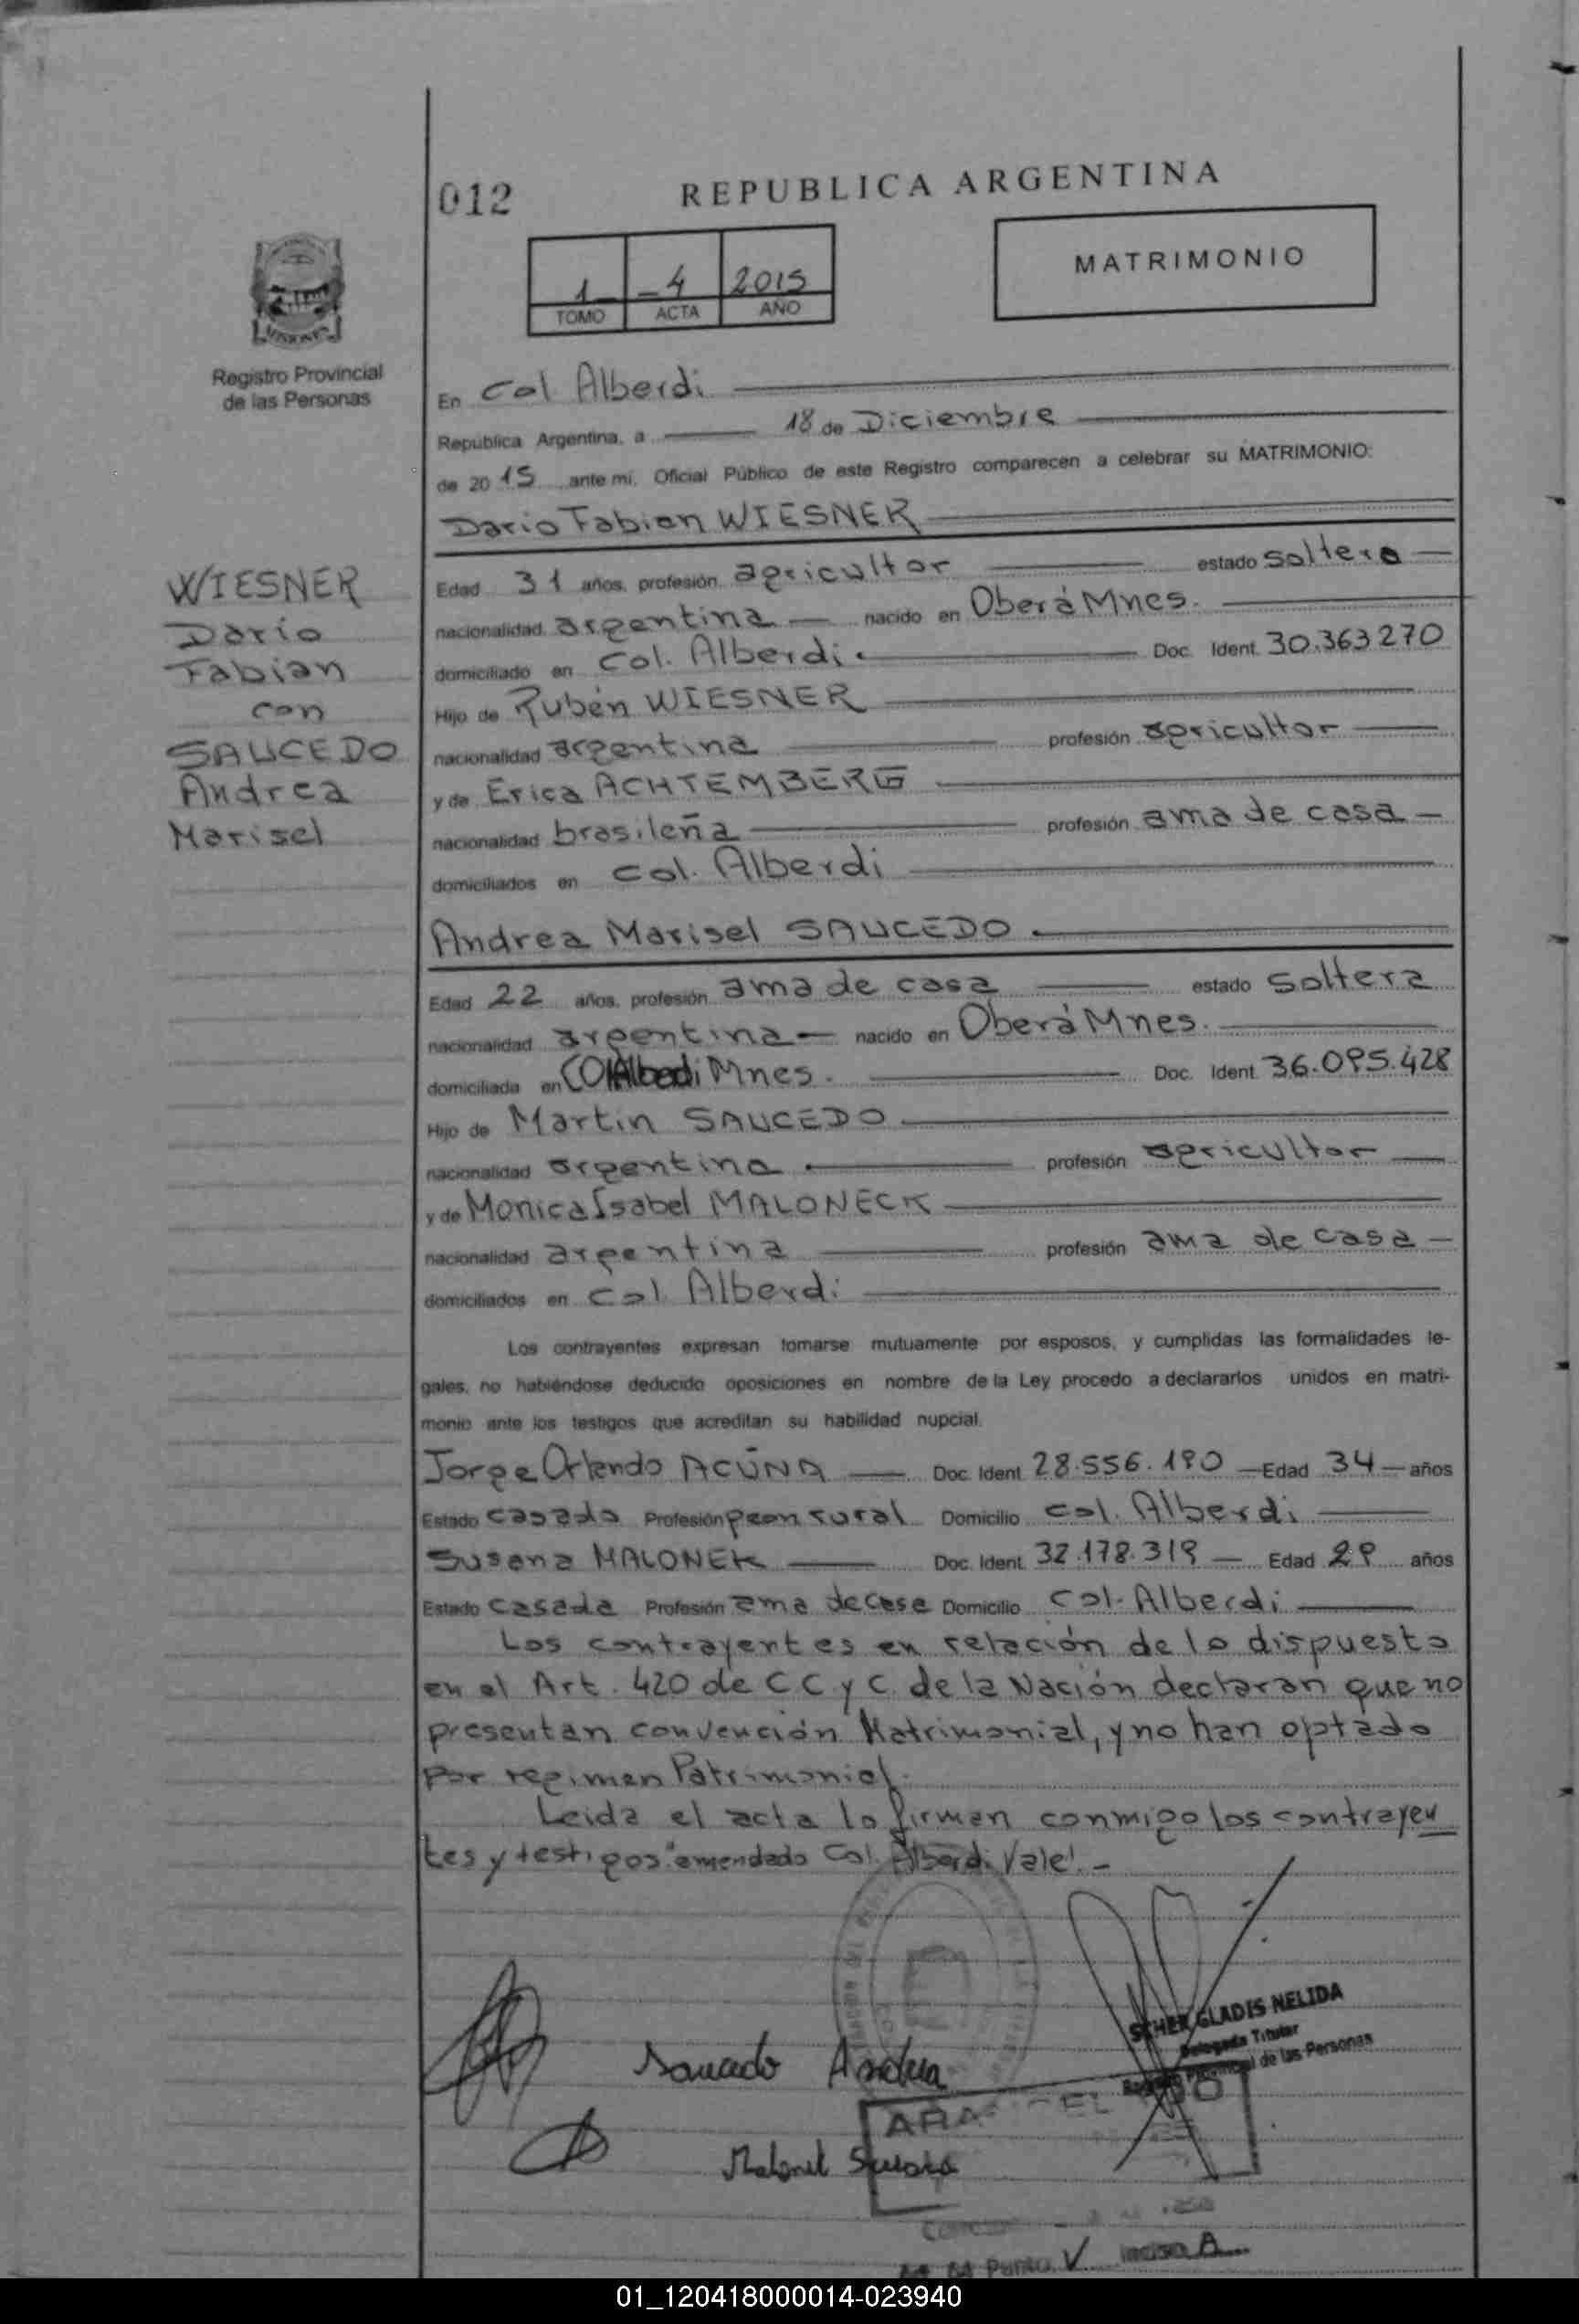 012
REPUBLICA ARGENTINA
MATRIMONIO
1 - 4 2015
TOMO ACTA AÑO
MISIONES
Registro Provincial
de las Personas
En Col Alberdi
República Argentina, a 18 de Diciembre
de 2015 ante mi, Oficial Público de este Registro comparecen a celebrar su MATRIMONIO:
Dario Fabian WIESNER
WIESNER
Dario
Fabian
con
SAUCEDO
Andrea
Marisel
Edad 31 años, profesión agricultor estado soltero
nacionalidad argentina nacido en Oberá Mnes.
domiciliado en Col. Alberdi. Doc. Ident. 30.363.270
Hijo de Rubén WIESNER
nacionalidad argentina profesión agricultor
y de Erica ACHTEMBERG
nacionalidad brasileña profesión ama de casa
domiciliados en Col. Alberdi
Andrea Marisel SAUCEDO
Edad 22 años, profesión ama de casa estado soltera
nacionalidad argentina nacido en Oberá Mnes.
domiciliada en Col Alberdi Mnes. Doc. Ident. 36.095.428
Hijo de Martin SAUCEDO
nacionalidad argentina profesión agricultor
y de Monica Isabel MALONECK
nacionalidad argentina profesión ama de casa
domiciliados en Col Alberdi
Los contrayentes expresan tomarse mutuamente por esposos, y cumplidas las formalidades le-
gales, no habiéndose deducido oposiciones en nombre de la Ley procedo a declararlos unidos en matri-
monio ante los testigos que acreditan su habilidad nupcial.
Jorge Orlando ACUÑA Doc. Ident. 28.556.190 Edad 34 años
Estado casado Profesión peon rural Domicilio Col. Alberdi
Susana MALONEK Doc. Ident. 32.178.319 Edad 29 años
Estado casada Profesión ama de casa Domicilio Col. Alberdi
Los contrayentes en relación de lo dispuesto
en el Art. 420 de C C y C de la Nación declaran que no
presentan convención Matrimonial, y no han optado
por regimen Patrimonial.
Leida el acta lo firman conmigo los contrayen
tes y testigos "emendado Col. Alberdi Vale".-
GLADIS NELIDA
Delegada Titular
Registro Provincial de las Personas
Saucedo Andrea
Malonek Susana
Punto V Inciso A
01_120418000014-023940